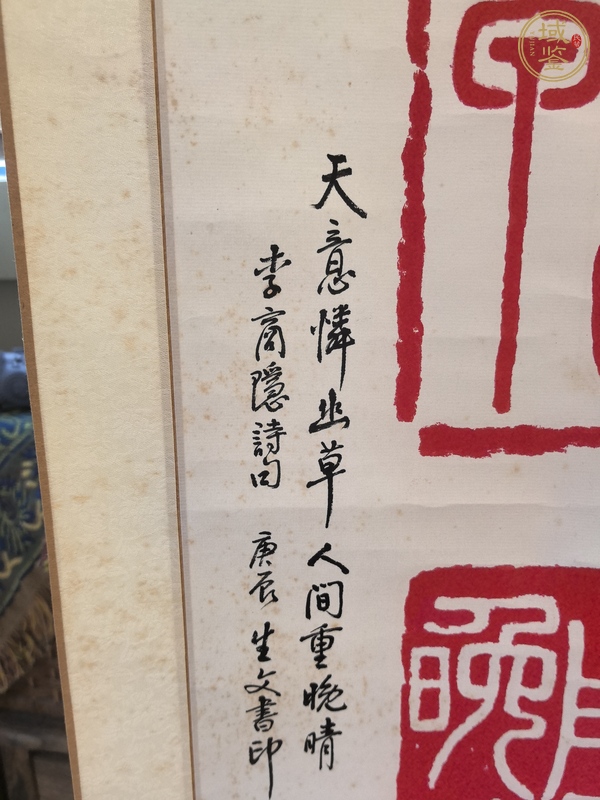 天意憐幽草人间重晚晴
李商隱詩句 庚辰 生文書印
晚
域鉴